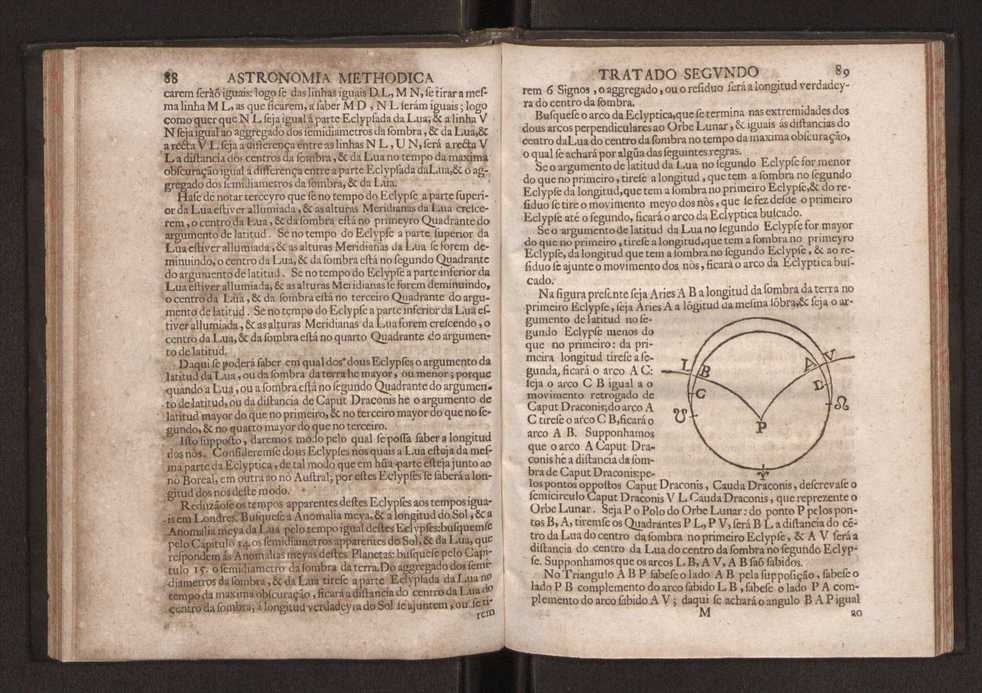 88 ASTRONOMIA METHODICA
carem serhõ iguais: logo se das linhas iguais D L, M N, se tirar a mes-
ma linha M L, as que ficarem, a saber M D , N L serám iguais ; logo
como quer que N L seja igual á parte Eclypsada da Lua; & a linha V
N seja igual ao aggregado dos semidiametros da sombra, & da Lua,&
a recta V L seja a differença entre as linhas N L , U N, será a recta V
L a distancia dos centros da sombra, & da Lua no tempo da maxima
obscuraçaõ igual á differença entre a parte Eclypsada da Lua,& o ag-
gregado dos semidiametros da sombra, & da Lua.
Hase de notar terceyro que se no tempo do Eclypse a parte superi-
or da Lua estiver allumiada , & as alturas Meridianas da Lua cresce-
rem , o centro da Lua , & da sombra está no primeyro Quadrante do
argumento de latitud. Se no tempo do Eclypse a parte superior da
Lua estiver allumiada , & as alturas Meridianas da Lua se forem de-
minuindo, o centro da Lua, & da sombra está no segundo Quadrante
do argumento de latitud. Se no tempo do Eclypse a parte inferior da
Lua estiver allumiada, & as alturas Meridianas se forem deminuindo,
o centro da Lua, & da sombra está no terceiro Quadrante do argu-
mento de latitud. Se no tempo do Eclypse a parte inferior da Lua es-
tiver allumiada , & as alturas Meridianas da Lua forem crescendo , o
centro da Lua, & da sombra está no quarto Quadrante do argumen-
to de latitud.
Daqui se poderá saber em qual dos dous Eclypses o argumento da
latitud da Lua , ou da sombra da terra he mayor, ou menor; porque
quando a Lua , ou a sombra está no segundo Quadrante do argumen-
to de latitud, ou da distancia de Caput Draconis he o argumento de
latitud mayor do que no primeiro, & no terceiro mayor do que no se-
gundo, & no quarto mayor do que no terceiro.
Isto supposto, daremos modo pelo qual se possa saber a longitud
dos nòs. Consideremse dous Eclypses nos quais a Lua esteja da mes-
ma parte da Eclyptica, de tal modo que em hũa parte esteja junto ao
no Boreal, em outra ao no Austral; por estes Eclypses se saberá a lon-
gitud dos nos deste modo.
Reduzaõse os tempos apparentes destes Eclypses aos tempos igua-
is em Londres. Busquese a Anomalia meya, & a longitud do Sol, & a
Anomalia meya da Lua pelo tempo igual destes Eclypses: busquemse
pelo Capitulo 14. os semidiametros apparentes do Sol, & da Lua, que
respondem ás Anomalias meyas destes Planetas: busquese pelo Capi-
tulo 15. o semidiametro da sombra da terra. Do aggregado dos semi-
diametros da sombra, & da Lua tirese a parte Eclypsada da Lua no
tempo da maxima obscuração , ficará a distancia do centro da Lua do
centro da sombra; á longitud verdadeyra do Sol se ajuntem, ou se ti-
rem
TRATADO SEGVNDO 89
rem 6 Signos , o aggregado , ou o residuo será a longitud verdadey-
ra do centro da sombra.
Busquese o arco da Eclyptica,que se termina nas extremidades dos
dous arcos perpendiculares ao Orbe Lunar, & iguais ás distancias do
centro da Lua do centro da sombra no tempo da maxima obscuração,
o qual se achará por algũa das seguintes regras.
Se o argumento de latitud da Lua no segundo Eclypse for menor
do que no primeiro, tirese a longitud , que tem a sombra no segundo
Eclypse da longitud,que tem a sombra no primeiro Eclypse,& do re-
siduo se tire o movimento meyo dos nòs , que se fez desde o primeiro
Eclypse até o segundo, ficará o arco da Eclyptica buscado.
Se o argumento de latitud da Lua no segundo Eclypse for mayor
do que no primeiro , tirese a longitud,que tem a sombra no primeyro
Eclypse, da longitud que tem a sombra no segundo Eclypse , & ao re-
siduo se ajunte o movimento dos nòs , ficará o arco da Eclyptica bus-
cado.
Na figura presente seja Aries A B a longitud da sombra da terra no
primeiro Eclypse, seja Aries A a lõgitud da mesma sõbra,& seja o ar-
gumento de latitud no se-
gundo Eclypse menos do
que no primeiro : da pri-
meira longitud tirese a se-
gunda, ficará o arco A C:
seja o arco C B igual a o
movimento retrogado de
Caput Draconis;do arco A
C tirese o arco C B,ficará o
arco A B. Supponhamos
que o arco A Caput Dra-
conis he a distancia da som-
bra de Caput Draconis:pe-
L B C ☋ P A V D ☊ ♈
los pontos oppostos Caput Draconis , Cauda Draconis, descrevase o
semicirculo Caput Draconis V L Cauda Draconis , que reprezente o
Orbe Lunar. Seja P o Polo do Orbe Lunar : do ponto P pelos pon-
tos B, A, tiremse os Quadrantes P L, P V, será B L a distancia do cẽ-
tro da Lua do centro da sombra no primeiro Eclypse , & A V será a
distancia do centro da Lua do centro da sombra no segundo Eclyp-
se. Supponhamos que os arcos L B, A V , A B saõ sabidos.
No Triangulo A B P sabese o lado A B pela supposição , sabese o
lado P B complemento do arco sabido L B , sabese o lado P A com-
plemento do arco sabido A V ; daqui se achará o angulo B A P igual
M ao